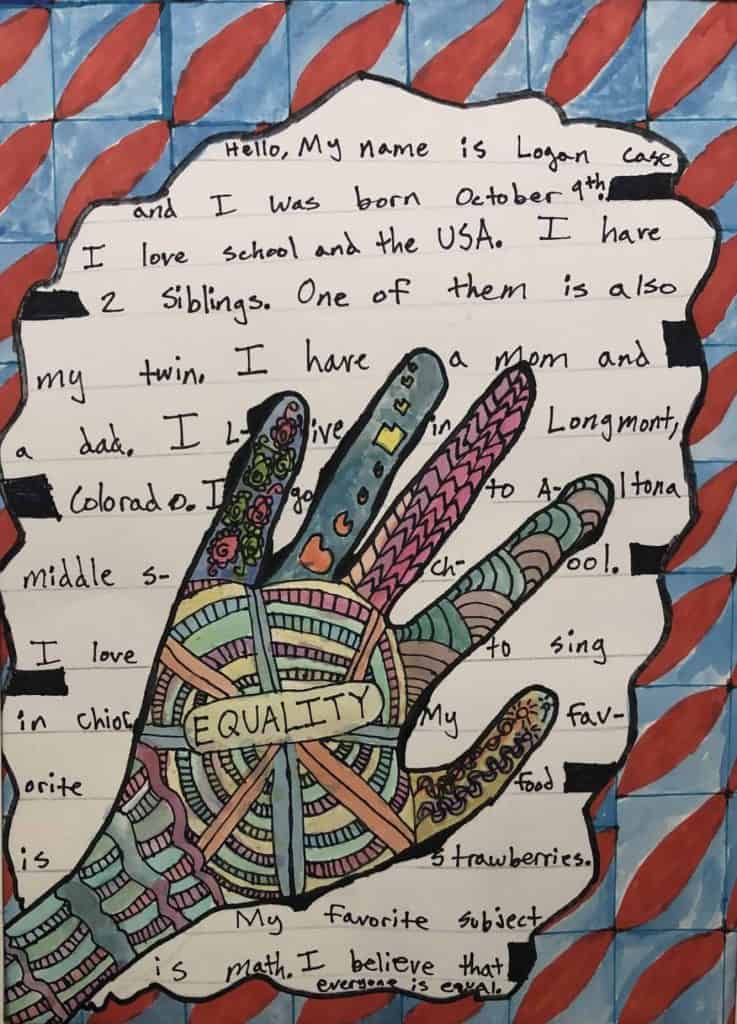 Hello, My name is Logan case
and I was born October 9th.
I love school and the USA. I have
2 siblings. One of them is also
my twin. I have a mom and
a dad. I L-ive in Longmont,
Colorado. I go to A-ltona
middle s-ch-ool.
I love to sing
in chior. My fav-
orite food
EQUALITY
is strawberries.
My favorite subject
is math. I believe that
everyone is equal.